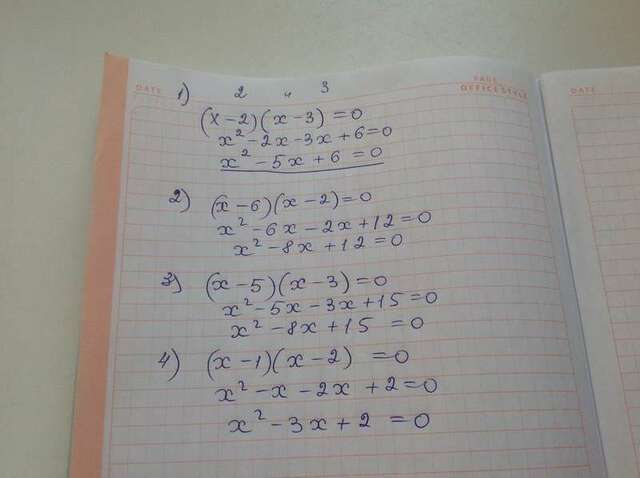 PAGE
DATE OFFICE STYLE DATE
1) 2 и 3
(x-2)(x-3)=0
x²-2x-3x+6=0
x²-5x+6=0
2) (x-6)(x-2)=0
x²-6x-2x+12=0
x²-8x+12=0
3) (x-5)(x-3)=0
x²-5x-3x+15=0
x²-8x+15=0
4) (x-1)(x-2)=0
x²-x-2x+2=0
x²-3x+2=0